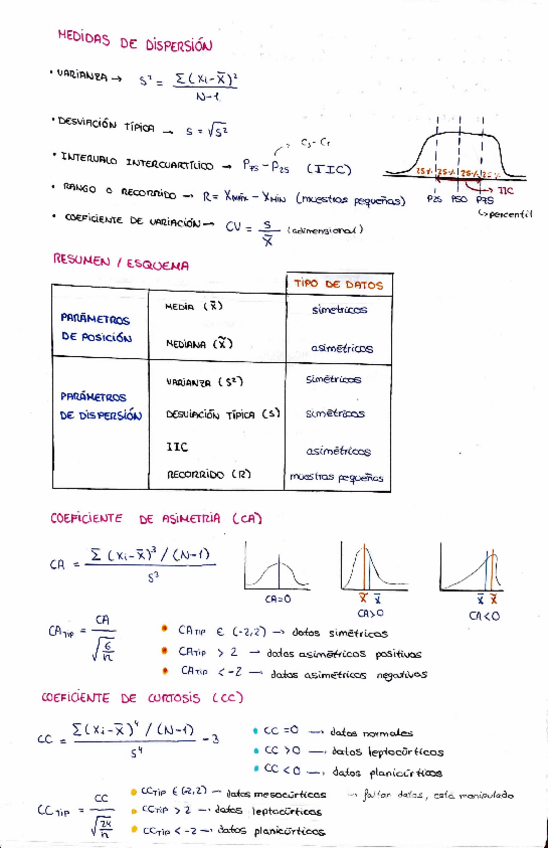 MEDIDAS DE DISPERSIÓN
• VARIANZA → S² = Σ(Xi-X̄)² / N-1
• DESVIACIÓN TÍPICA → S = √S²
C3-C1
• INTERVALO INTERCUARTÍLICO → P75-P25 (IIC)
25% 25% 25% 25%
→ IIC
P25 P50 P75
↳ percentil
• RANGO O RECORRIDO → R = XMÁX - XMÍN (muestras pequeñas)
• COEFICIENTE DE VARIACIÓN → CV = S / X̄ (adimensional)
RESUMEN / ESQUEMA
TIPO DE DATOS
PARÁMETROS DE POSICIÓN
MEDIA (X̄) simétricos
MEDIANA (X̃) asimétricos
PARÁMETROS DE DISPERSIÓN
VARIANZA (S²) simétricos
DESVIACIÓN TÍPICA (S) simétricos
IIC asimétricos
RECORRIDO (R) muestras pequeñas
COEFICIENTE DE ASIMETRÍA (CA)
CA = Σ(Xi-X̄)³/(N-1) / S³
CA=0
X̃ X̄
CA>0
X̄ X̃
CA<0
CATIP = CA / √(6/n)
• CATIP ∈ (-2,2) → datos simétricos
• CATIP > 2 → datos asimétricos positivos
• CATIP < -2 → datos asimétricos negativos
COEFICIENTE DE CURTOSIS (CC)
CC = Σ(Xi-X̄)⁴/(N-1) / S⁴ - 3
• CC = 0 → datos normales
• CC > 0 → datos leptocúrticos
• CC < 0 → datos planicúrticos
CCTIP = CC / √(24/n)
• CCTIP ∈ (-2,2) → datos mesocúrticos → faltan datos, está manipulado
• CCTIP > 2 → datos leptocúrticos
• CCTIP < -2 → datos planicúrticos